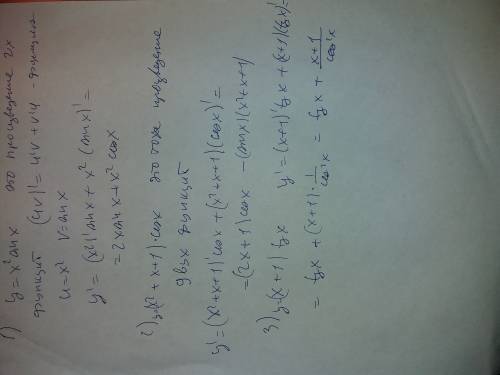 1) y=x² sin x это произведение 2х
функций (uv)'=u'v+v'u - формула
u=x² v=sin x
y'=(x²)' sin x + x² (sin x)'=
=2x sin x + x² cos x
2) y=(x²+x+1)·cos x это тоже произведение
двух функций
y'=(x²+x+1)' cos x + (x²+x+1)(cos x)'=
=(2x+1) cos x - (sin x)(x²+x+1)
3) y=(x+1) tg x y'=(x+1)' tg x + (x+1)(tg x)'=
= tg x + (x+1)· 1/cos²x = tg x + x+1/cos²x